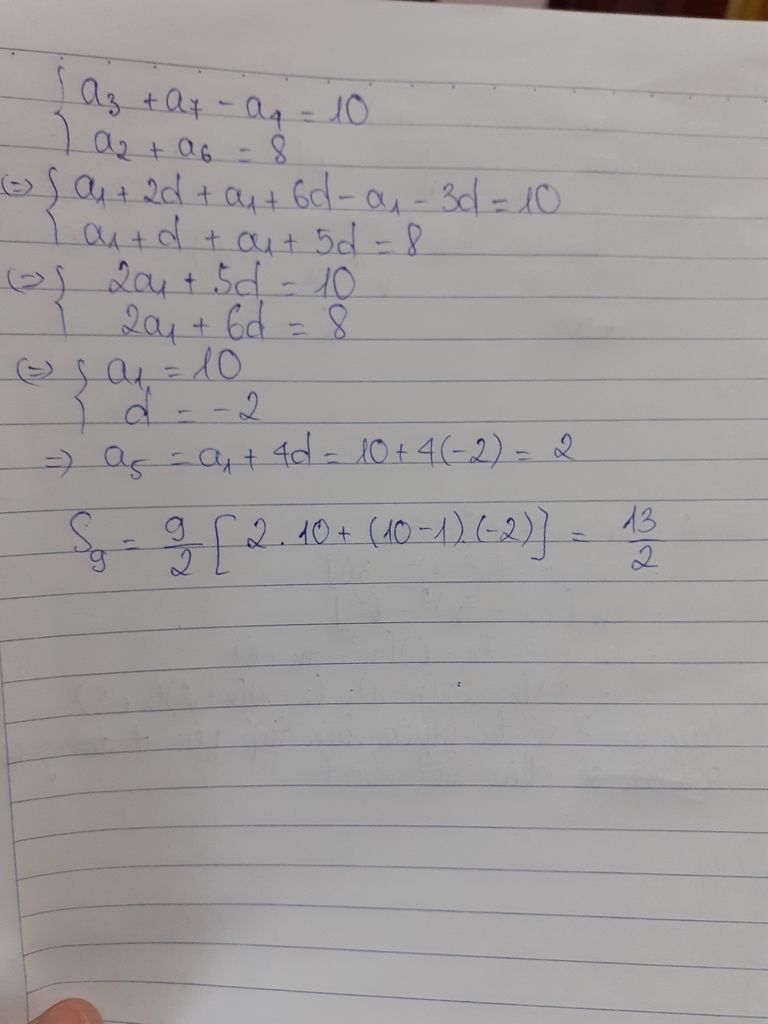 { a₃ + a₇ - a₄ = 10
a₂ + a₆ = 8
(=) { a₁ + 2d + a₁ + 6d - a₁ - 3d = 10
a₁ + d + a₁ + 5d = 8
(=) { 2a₁ + 5d = 10
2a₁ + 6d = 8
(=) { a₁ = 10
d = -2
=> a₅ = a₁ + 4d = 10 + 4(-2) = 2
S₉ = 9/2 [2.10 + (10-1).(-2)] = 13/2